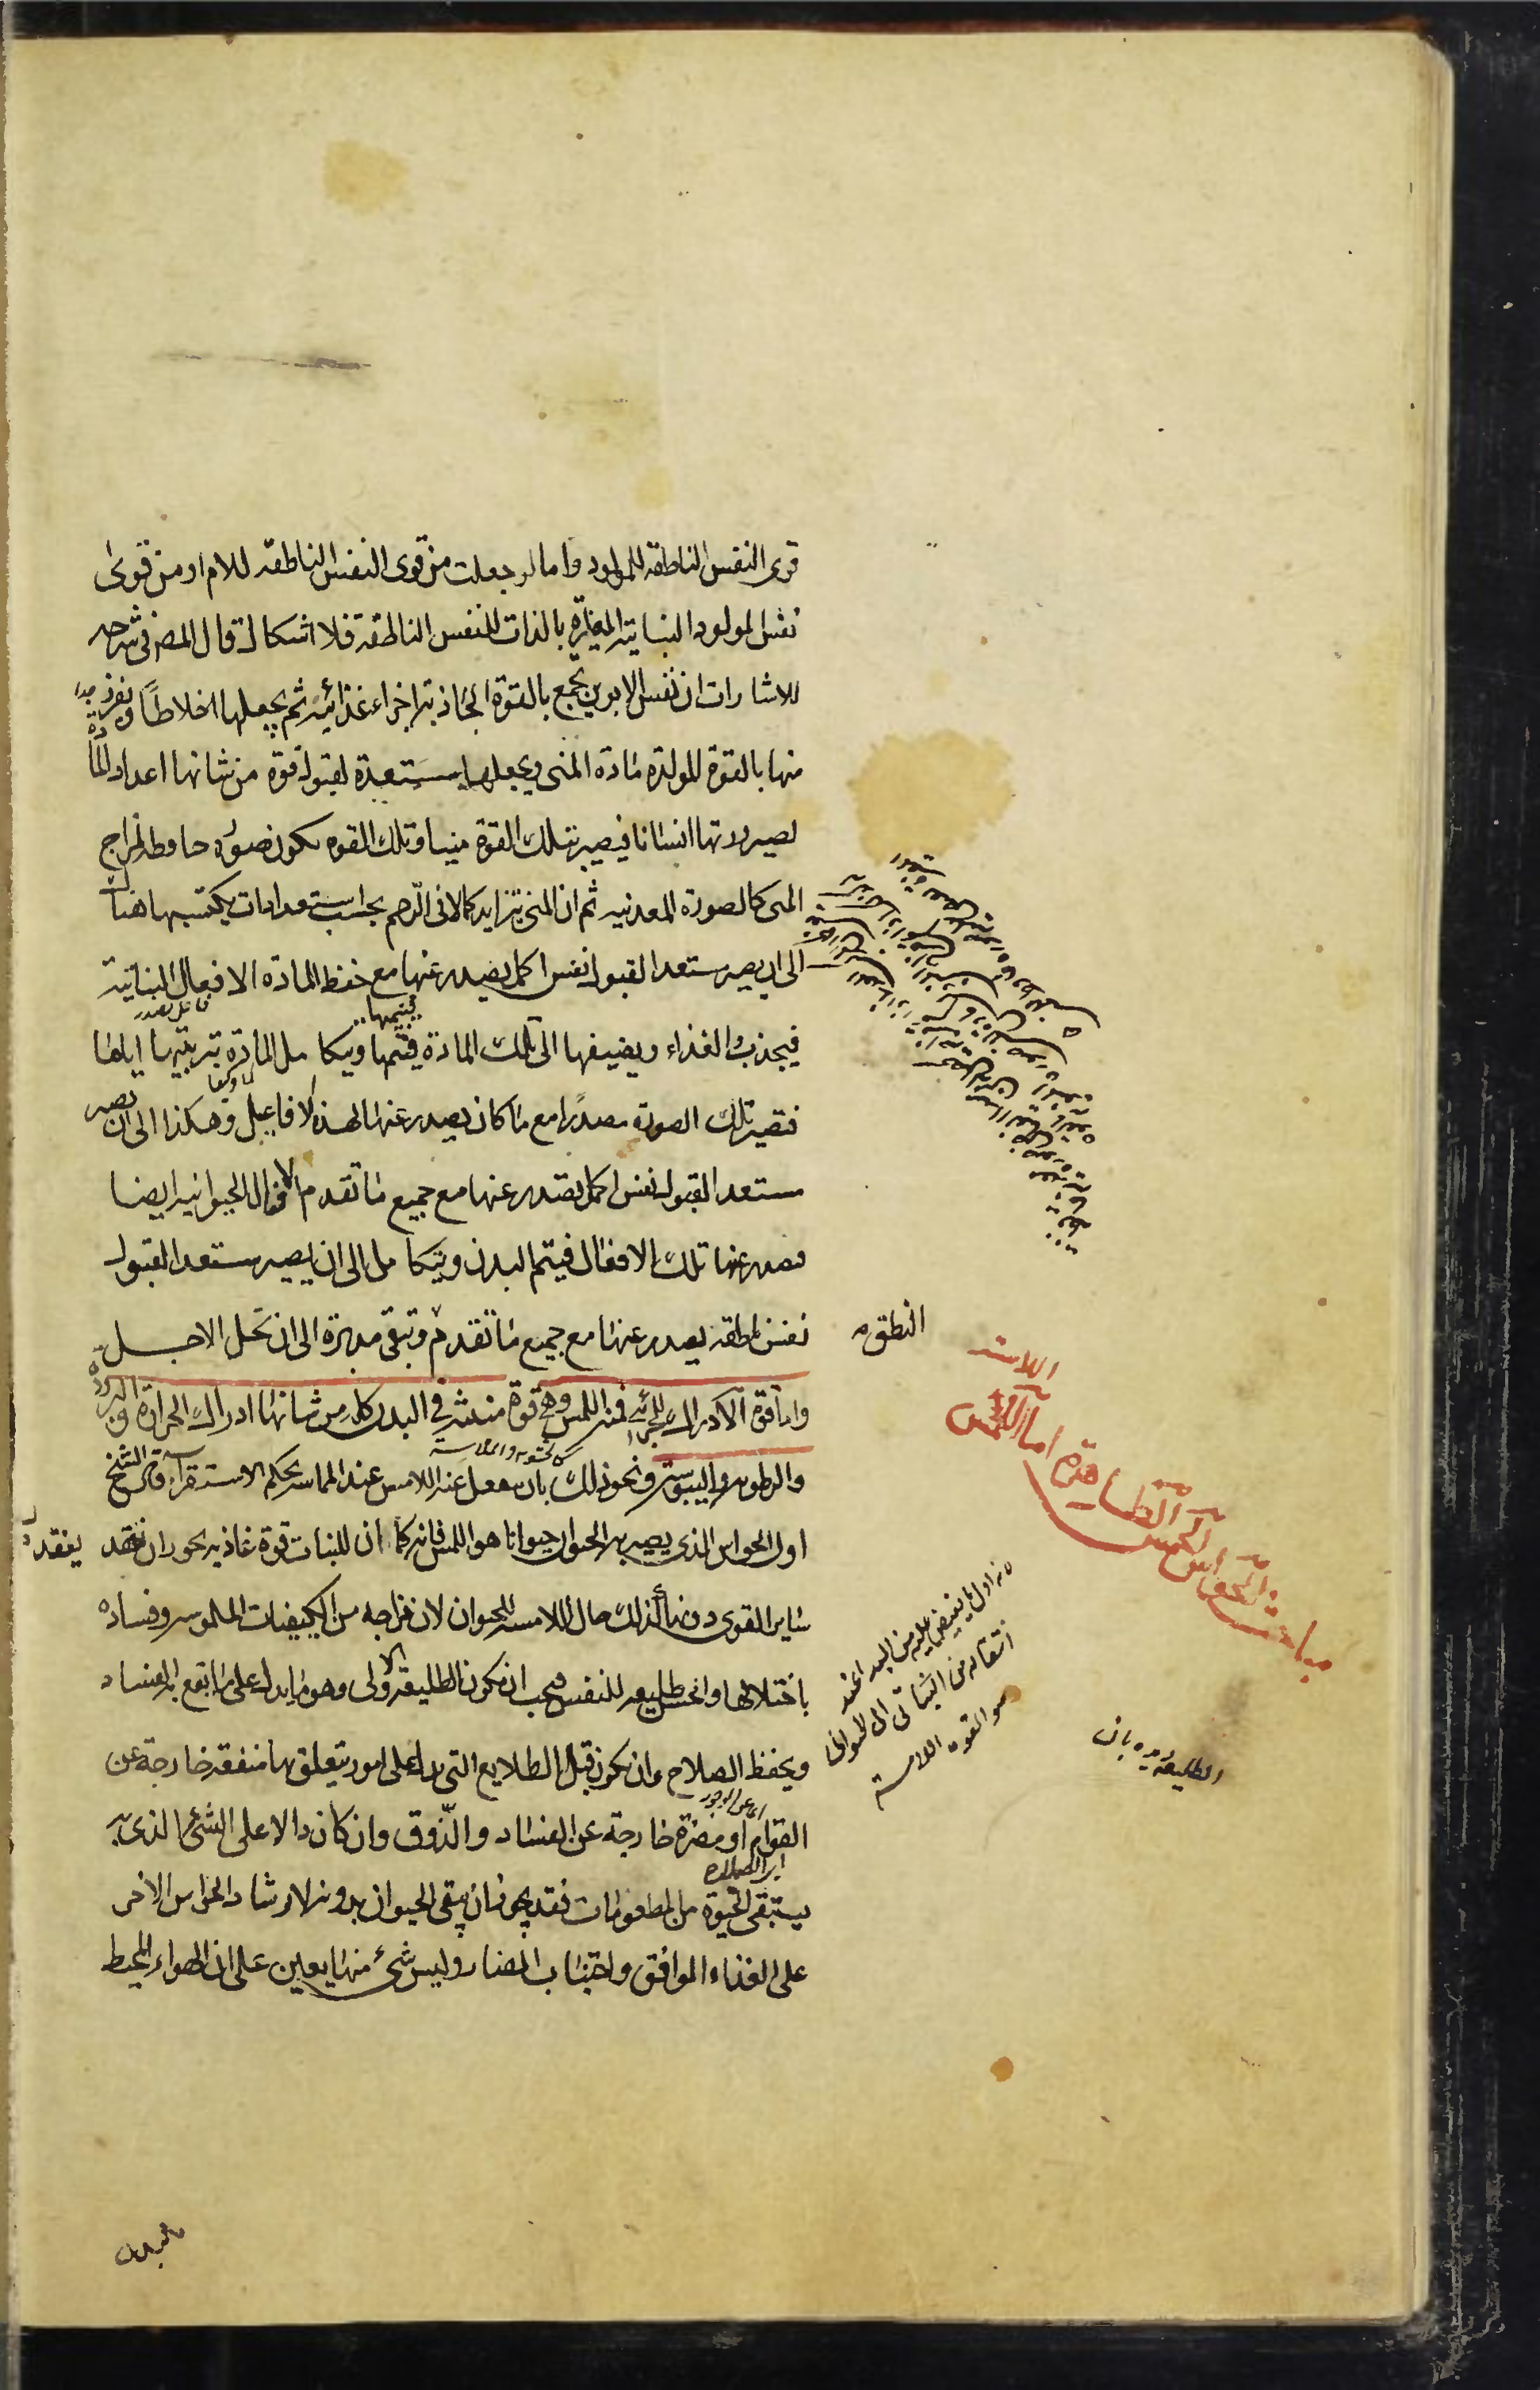 قوى النفس الناطقة للمولود واما لو جعلت من قوى النفس الناطقه للام او من قوى
نفس المولود النباتية المغايرة بالذات للنفس الناطقة فلا اشكال قال المص في شرحه
للاشارات ان نفس الابوين تجمع بالقوة الجاذبة اجزاء غذائية ثم يجعلها اخلاطا وتفرز
منها بالقوة المولدة مادة المنى ويجعلها مستعدة لقبول قوة من شانها اعداد المادة
لصيرورتها انسانا فيصير بتلك القوة منيا وتلك القوه تكون صورة حافظه لمزاج
المنى كالصورة المعدنيه ثم ان المنى يتزايد كمالا فى الرحم بحسب استعدادات يكتسبها هناك
الى ان يصير مستعدا لقبول نفس اكمل يصدر عنها مع حفظ المادة الافعال النباتية
فيجذب الغذاء ويضيفها الى تلك المادة فتنميها ويتكامل المادة بتربيتها اياها
فتصير تلك الصورة مصدرا مع ما كان يصدر عنها لهذه الافاعيل وهكذا الى ان تصير
مستعدا لقبول نفس اكمل يصدر عنها مع جميع ما تقدم الافعال الحيوانيه ايضا
فيصدر عنها تلك الافعال فيتم البدن ويتكامل الى ان يصير مستعدا لقبول
نفس ناطقه يصدر عنها مع جميع ما تقدم وتبقى مدبرة الى ان تحل الاجل
النطق
واما قوة الادراك للجزئى فمنه اللمس وهى قوة منبثه في البدن كله من شانها ادراك الحرارة والبرودة
والرطوبه واليبوسة ونحو ذلك بان ينفعل عنه اللامس عند المماسه بحكم الاستقراء قال الشيخ
كالخشونه والملاسه
اول الحواس الذى يصير به الحيوان حيوانا هو اللمس فانه كما ان للنبات قوة غاذيه يجوز ان تفقد
ساير القوى دونها كذلك حال اللامسه للحيوان لان مزاجه من الكيفيات الملموسه وفساده
باختلالها والحس طليعه للنفس فيجب ان يكون الطليعة الاولى وهو ما يدل على ما يقع به الفساد
ويحفظ به الصلاح وان يكون قبل الطلايع التى تدل على امور يتعلق بها منفعة خارجة عن
القوام او مضرة خارجة عن الفساد والذوق وان كان دالا على الشئ الذى به
يستبقى الحيوة من المطعومات فقد يجوز ان يبقى الحيوان بدونه لارشاد الحواس الاخر
على الغذاء الموافق واجتناب المضار وليس شئ منها يعين على ان الهواء المحيط
مباحث الحواس الخمس الظاهرة اما اللمس
اللامسة
لانه اول ما يفيض عليه من المبدا عند
انتقاله من النباتى الى الحيوانى
هو القوه اللامسة
الطليعة ديده بان
بالبدن